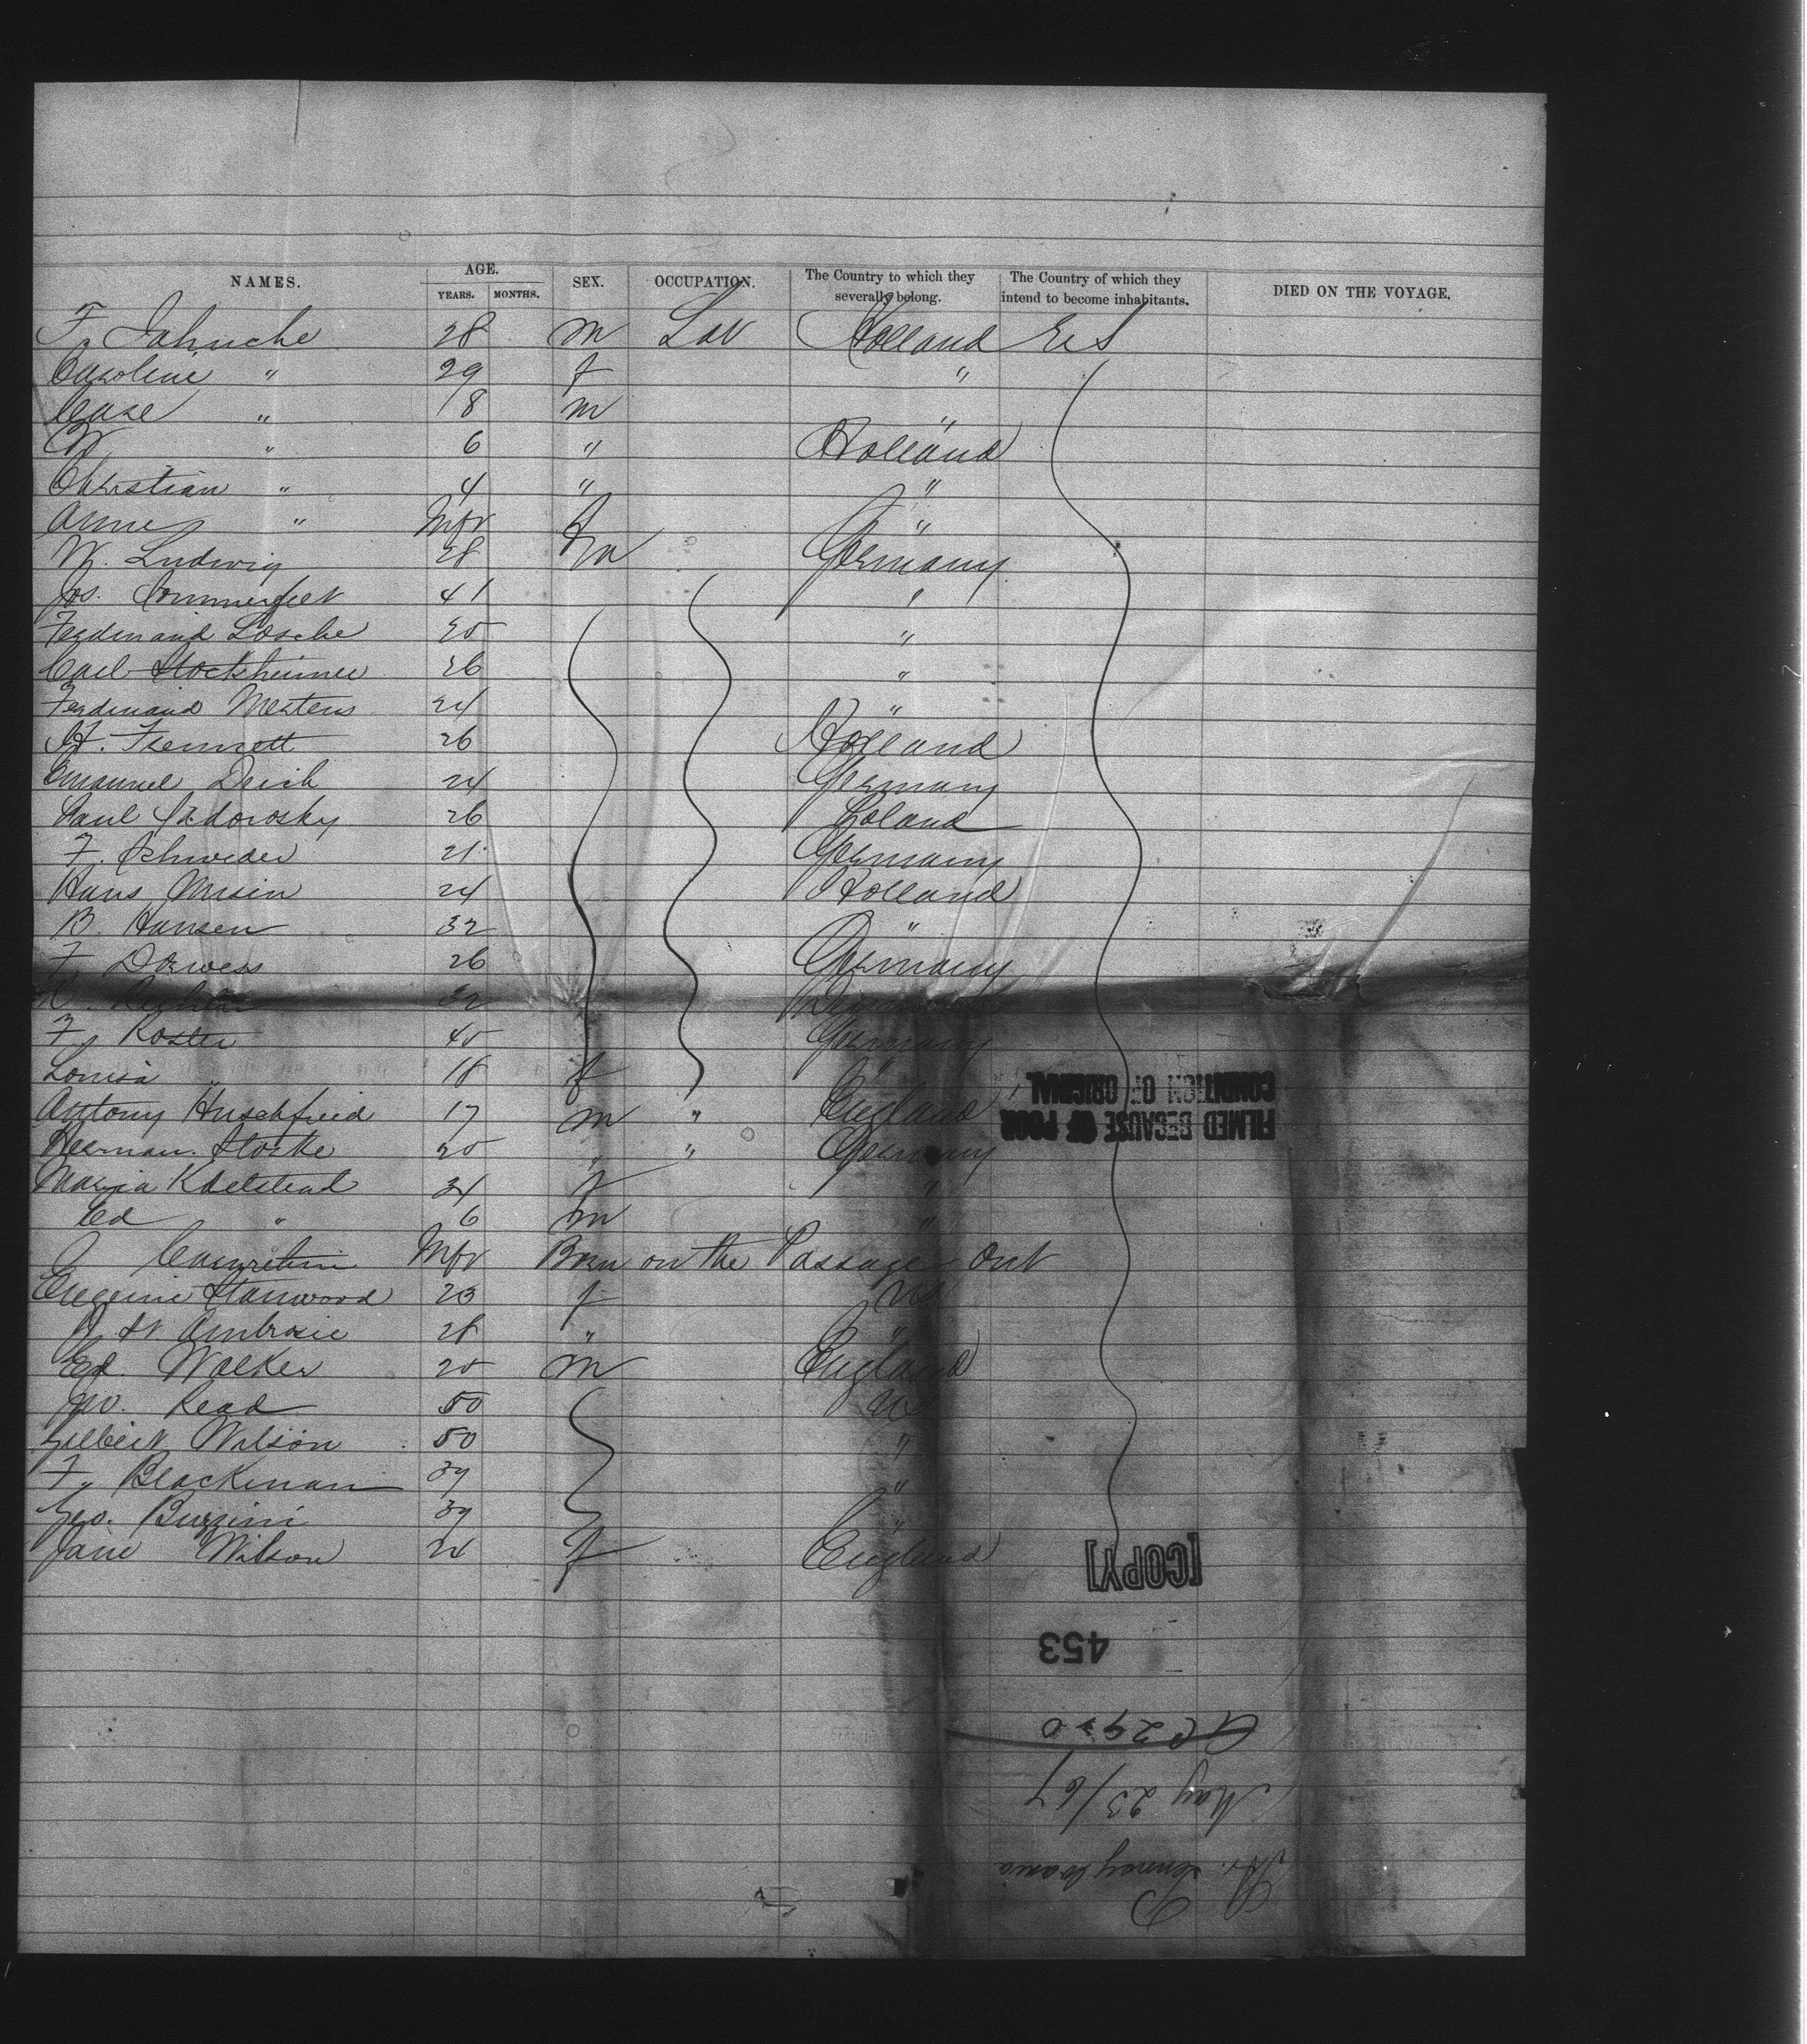 NAMES. AGE. YEARS. MONTHS. SEX. OCCUPATION. The Country to which they severally belong. The Country of which they intend to become inhabitants. DIED ON THE VOYAGE.
F. Jahncke 28 m Lab Holland U S
Caroline " 29 f "
Case " 18 m "
W " 6 " Holland
Christian " 4 " "
Anne " Inf f "
W. Ludwig 28 m Germany
Jos. Sommerfelt 41 "
Ferdinand Losche 20 "
Carl Stocksheimer 26 "
Ferdinand Mertens 24 "
H. Fsemmett 26 Holland
Emanuel Deich 24 Germany
Paul Sadorosky 26 Poland
F. Schweder 21 Germany
Hans 24 Holland
B. Hansen 32 "
F. Dorwess 26 Germany
32
F. Koster 45 Germany
Louisa " 18 f "
Antony Hirschfeild 17 m " England
Herman Storke 20 " " Germany
Maria Kdelstead 34 f "
Ed " 6 m "
Inf Born on the Passage out
Eugenie Stanwood 23 f US
St. Ambrosie 28 " "
Ed. Walker 20 m England
Jno. Read 50 US
Gilbert Wilson 50 "
F. Blackman 39 "
Geo. Buzzini 39 "
Jane Wilson 24 f England
FILMED BECAUSE OF POOR
CONDITION OF ORIGINAL
[COPY]
453
Str. Pennsylvania
May 23/67